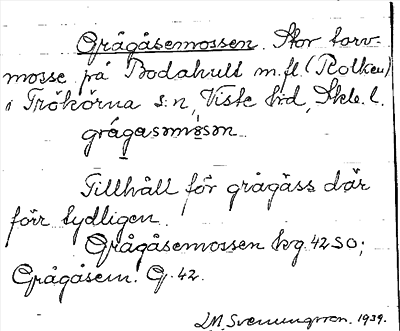 Grågåsemossen. Stor torv-
mosse på Bodahult m.fl. (Rolken)
i Frökörna s:n, Viste hrd, Skbl. l.
grågasəmåsən
Tillhåll för grågäss där
förr tydligen.
Grågåsemossen kvg. 42 SO;
Grågåsem. Gj. 42.
J.M. Svenungsson. 1939.